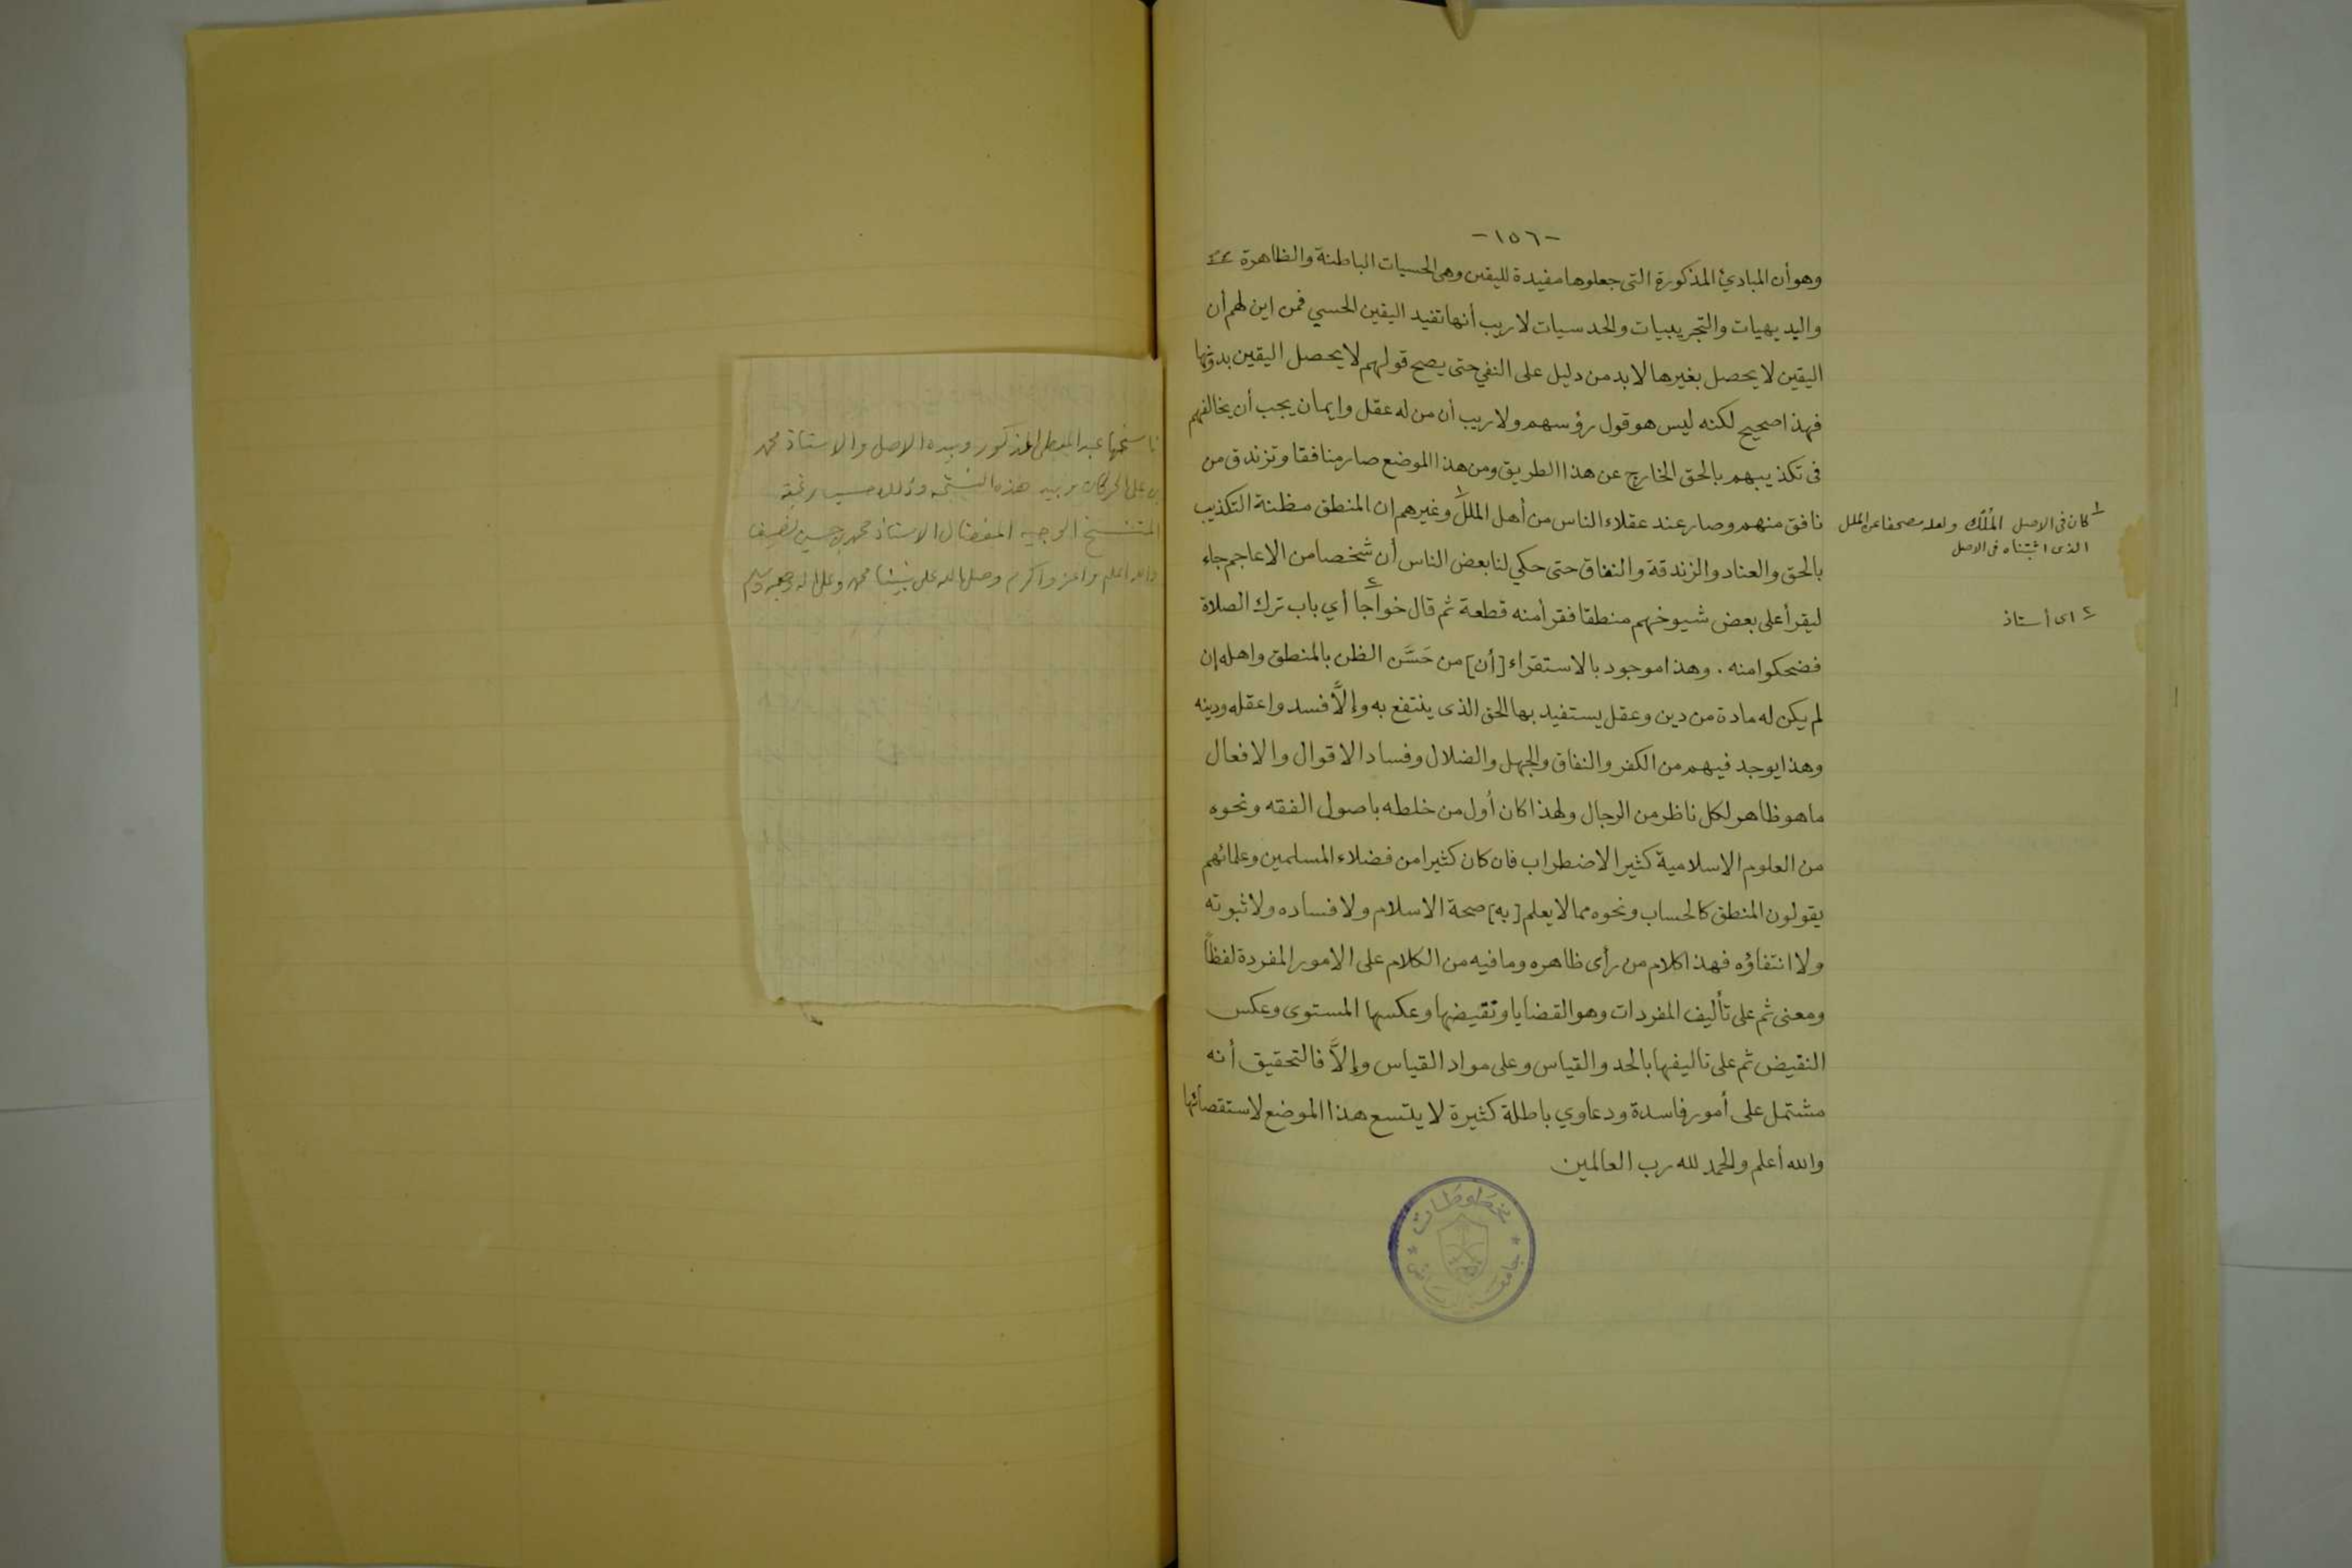 -١٥٦-
وهو أن المبادئ المذكورة التى جعلوها مفيدة لليقين وهى الحسيات الباطنة والظاهرة
واليديهيات والتجريبيات والحدسيات لا ريب أنها تفيد اليقين الحسي فمن اين لهم أن
اليقين لا يحصل بغيرها لابد من دليل على النفي حتى يصح قولهم لا يحصل اليقين بدونها
فهذا صحيح لكنه ليس هو قول رؤسهم ولا ريب أن من له عقل وايمان يجب أن يخالفهم
فى تكذيبهم بالحق الخارج عن هذا الطريق ومن هذا الموضع صار منافقا وتزندق من
نافق منهم وصار عند عقلاء الناس من أهل الملل١ وغيرهم ان المنطق مظنة التكذيب
بالحق والعناد والزندقة والنفاق حتى حكي لنا بعض الناس أن شخصا من الاعاجم جاء
ليقرأ على بعض شيوخهم منطقا فقرأ منه قطعة ثم قال خواجا٢ أي باب ترك الصلاة
فضحكوا منه . وهذا موجود بالاستقراء [أن] من حَسَّن الظن بالمنطق واهله إن
لم يكن له مادة من دين وعقل يستفيد بها الحق الذى ينتفع به وإلاَّ فسد واعقله ودينه
وهذا يوجد فيهم من الكفر والنفاق والجهل والضلال وفساد الاقوال والافعال
ما هو ظاهر لكل ناظر من الرجال ولهذا كان أول من خلطه باصول الفقه ونحوه
من العلوم الاسلامية كثير الاضطراب فان كان كثيرا من فضلاء المسلمين وعلمائهم
يقولون المنطق كالحساب ونحوه مما لا يعلم [به] صحة الاسلام ولا فساده ولا ثبوته
ولا انتفاؤه فهذا كلام من رأى ظاهره وما فيه من الكلام على الامور المفردة لفظاً
ومعنى ثم على تأليف المفردات وهو القضايا وتقيضها وعكسها المستوى وعكس
النقيض ثم على تاليفها بالحد والقياس وعلى مواد القياس وإلاَّ فالتحقيق أنه
مشتمل على أمور فاسدة ودعاوي باطلة كثيرة لا يتسع هذا الموضع لاستقصائها
والله أعلم والحمد لله رب العالمين
١ كان فى الاصل المُلْك ولعله مصحفا عن الملل
الذى اثبتناه فى الاصل
٢ اى أستاذ
مخطوطات
جامعة الرياض
ناسخها عبد المعطى المذكور وبيده الاصل والاستاذ محمد
بن على الحركان وبيده هذه النسخة وذلك حسب رغبة
المستنسخ الوجيه المفضال الاستاذ محمد بن حسين نصيف
والله اعلم واعز واكرم وصلى الله على نبينا محمد وعلى آله وصحبه وسلم